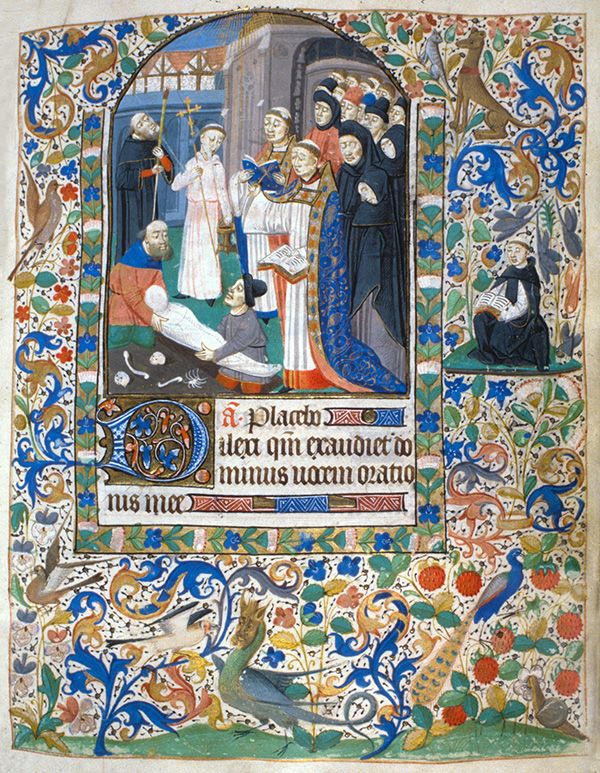 A. Placebo
Dilexi qm̄ exaudiet do
minus uocem oratio
nis mee